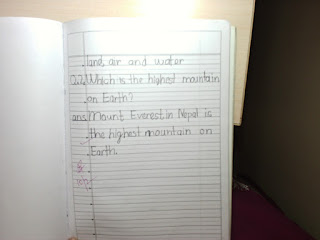 land, air and water
Q.2. Which is the highest mountain
on Earth?
ans. Mount Everest in Nepal is
the highest mountain on
Earth.